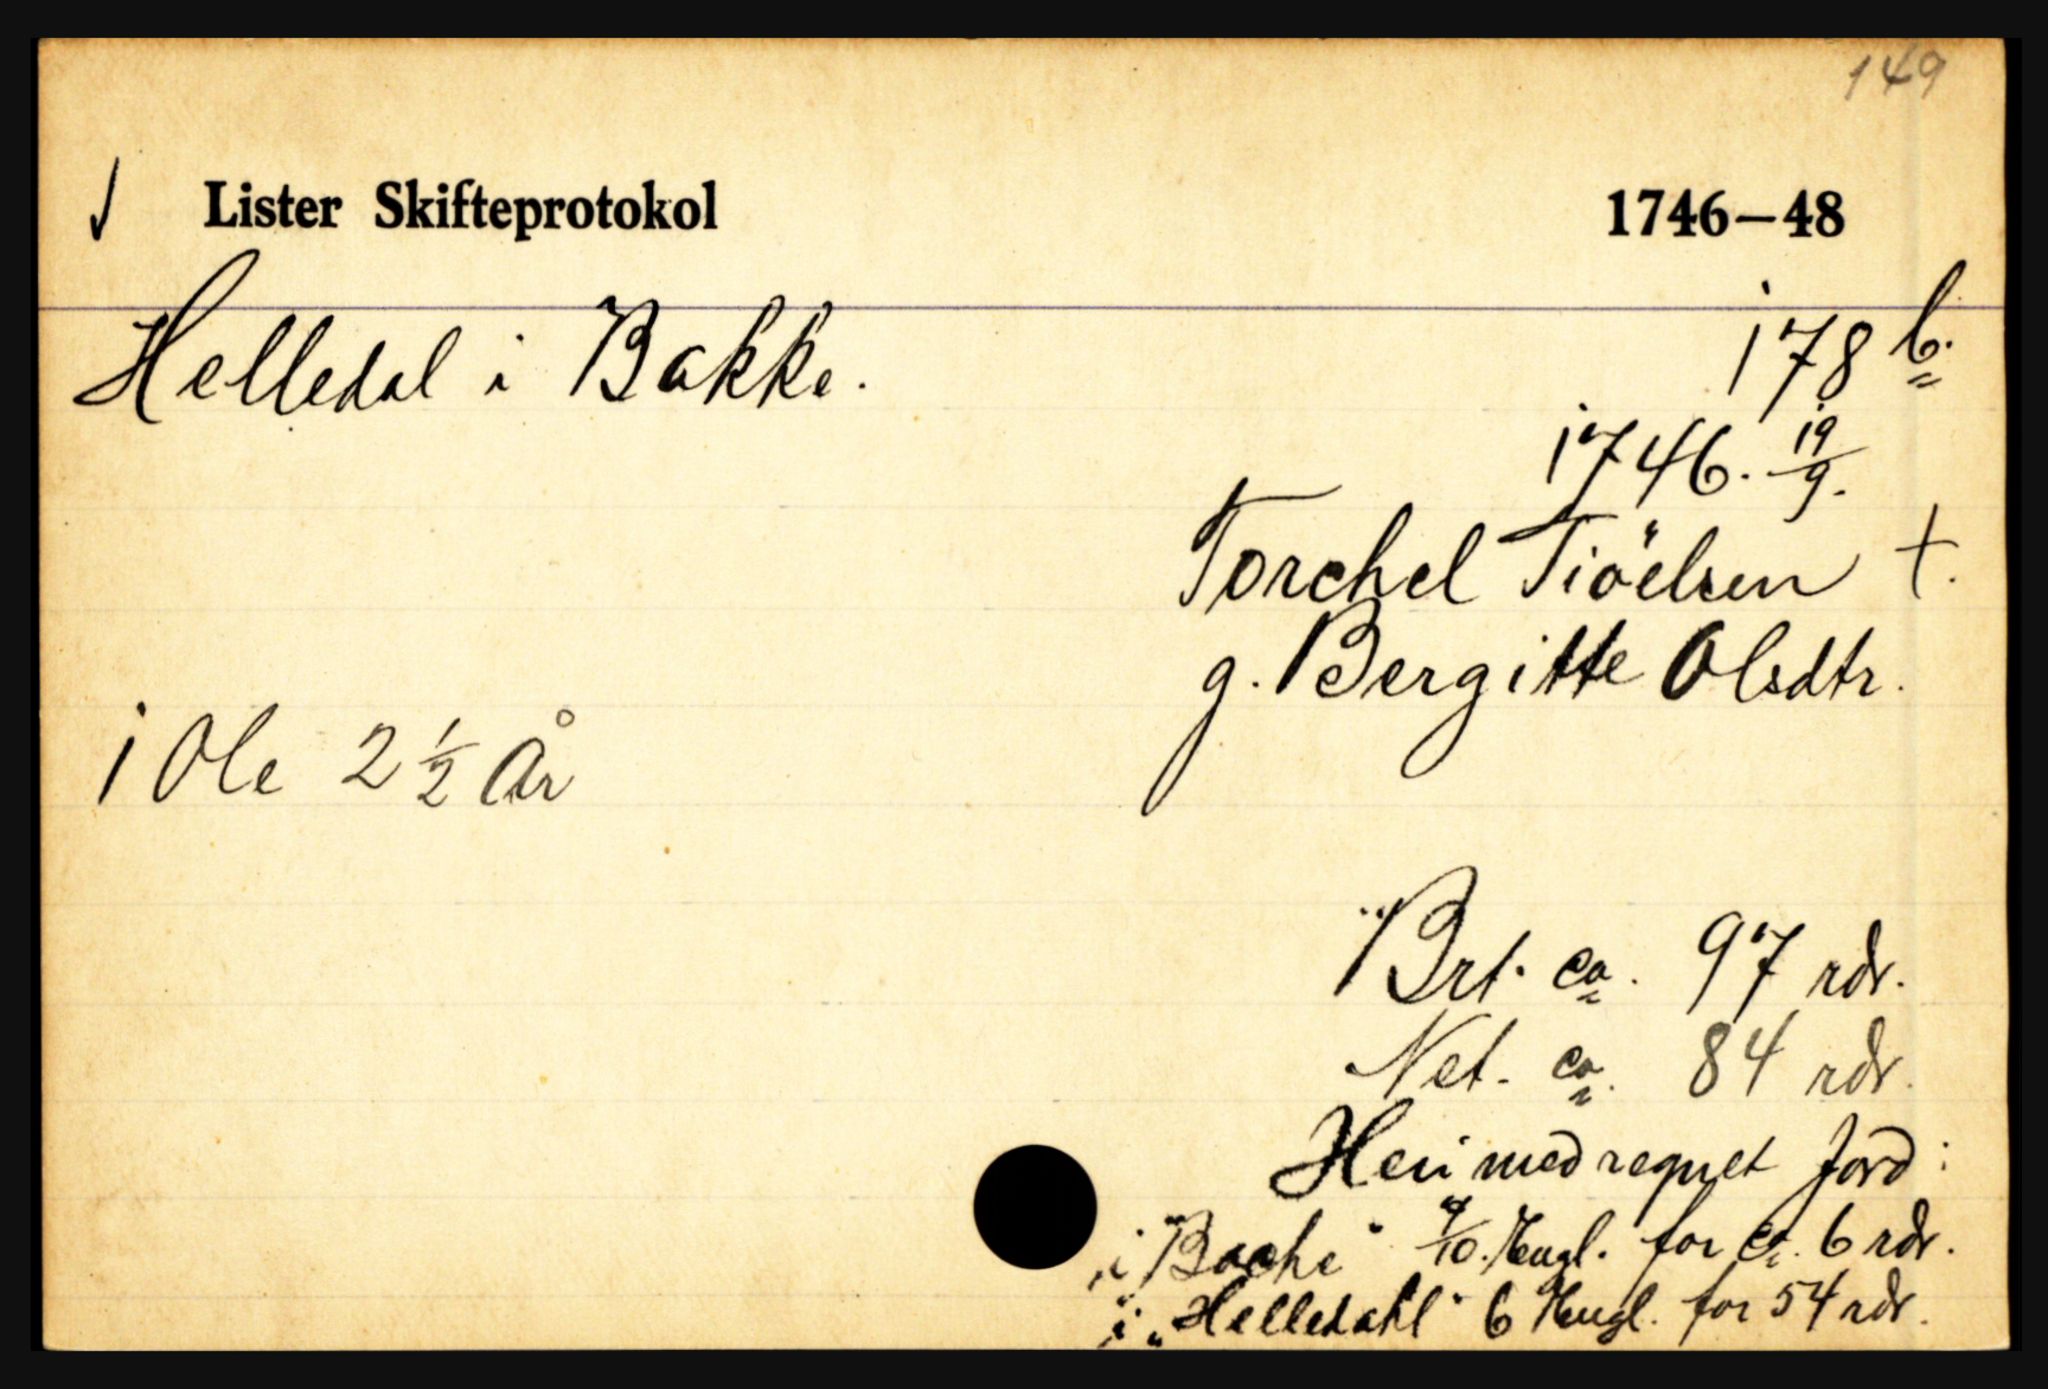 149
Lister Skifteprotokol 1746-48
Helledal i Bakke. 178 b.
1746. 19/9.
Torchel Tiöelsen †.
g. Bergitte Olsdtr.
1 Ole 2 1/2 År
Brt. ca. 97 rdr.
Net. ca. 84 rdr.
Heri medregnet Jord:
i "Bache" /10. Hugl. for ca. 6 rdr.
i "Helledahl" 6 Hugl. for 54 rdr.